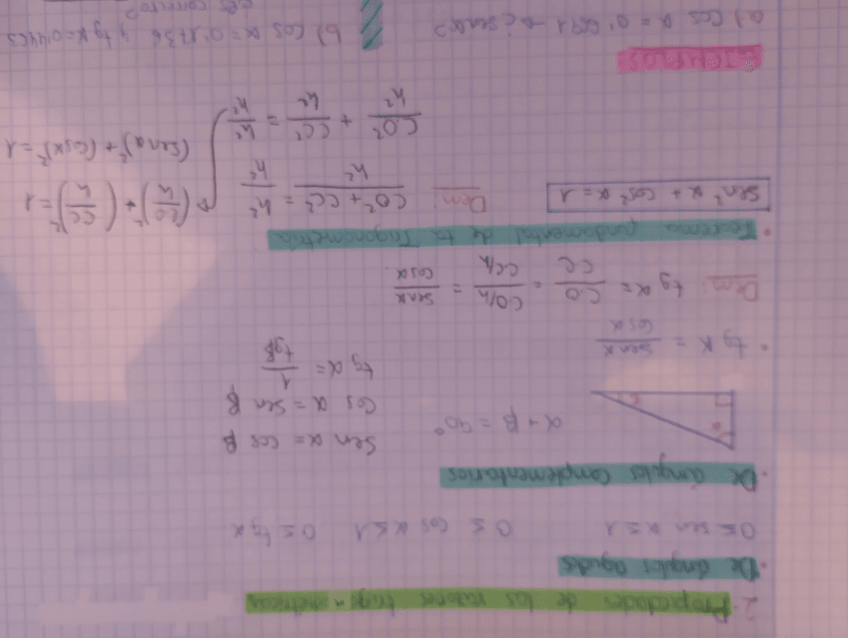 2- Propiedades de las razones trigonométricas
· De ángulos agudos
0 ≤ sen α ≤ 1   0 ≤ cos α ≤ 1   0 ≤ tg α
· De ángulos complementarios
α + β = 90°
sen α = cos β
cos α = sen β
tg α = 1/tg β
· tg α = sen α/cos α
Dem: tg α = CO/CC = CO/h/CC/h = sen α/cos α
· Teorema fundamental de la Trigonometría
sen² α + cos² α = 1
Dem: CO² + CC²/h² = h²/h²
CO²/h² + CC²/h² = h²/h²
→ (CO/h)² + (CC/h)² = 1
(sen α)² + (cos α)² = 1
EJEMPLOS
a) cos α =
b) cos α = 0'1736 y tg α =
¿Es correcto?